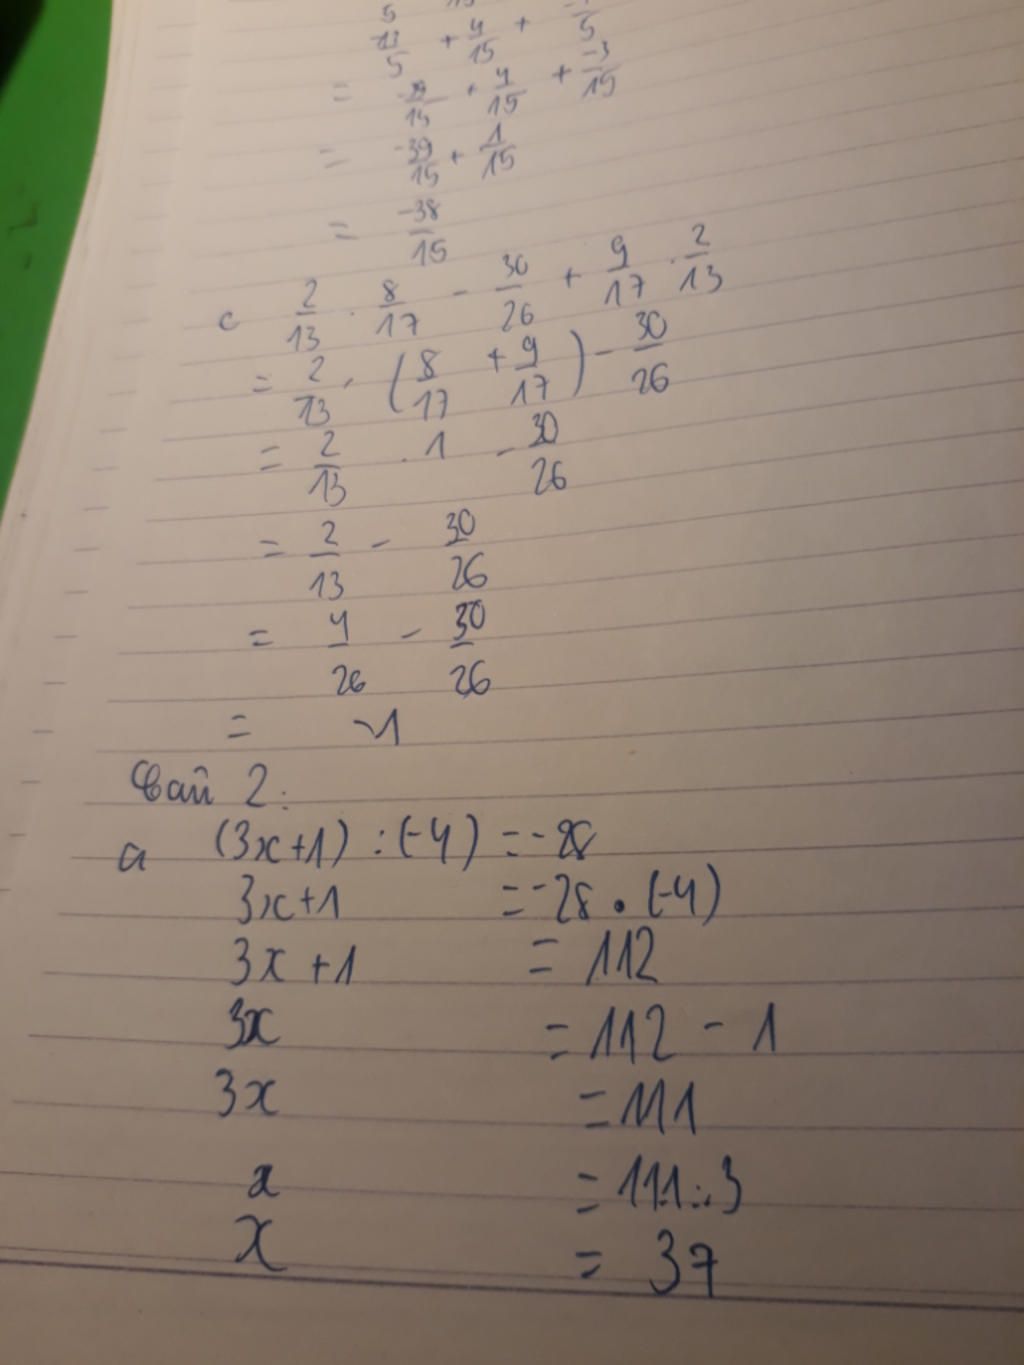 5 15
-13/5 + 4/15 + -1/5
= -39/15 + 4/15 + -3/15
= -39/15 + 1/15
= -38/15
c 2/13 . 8/17 - 30/26 + 9/17 . 2/13
= 2/13 . (8/17 + 9/17) - 30/26
= 2/13 . 1 - 30/26
= 2/13 - 30/26
= 4/26 - 30/26
= -1
Bài 2:
a (3x+1) : (-4) = -28
3x+1 = -28 . (-4)
3x+1 = 112
3x = 112 - 1
3x = 111
x = 111:3
x = 37